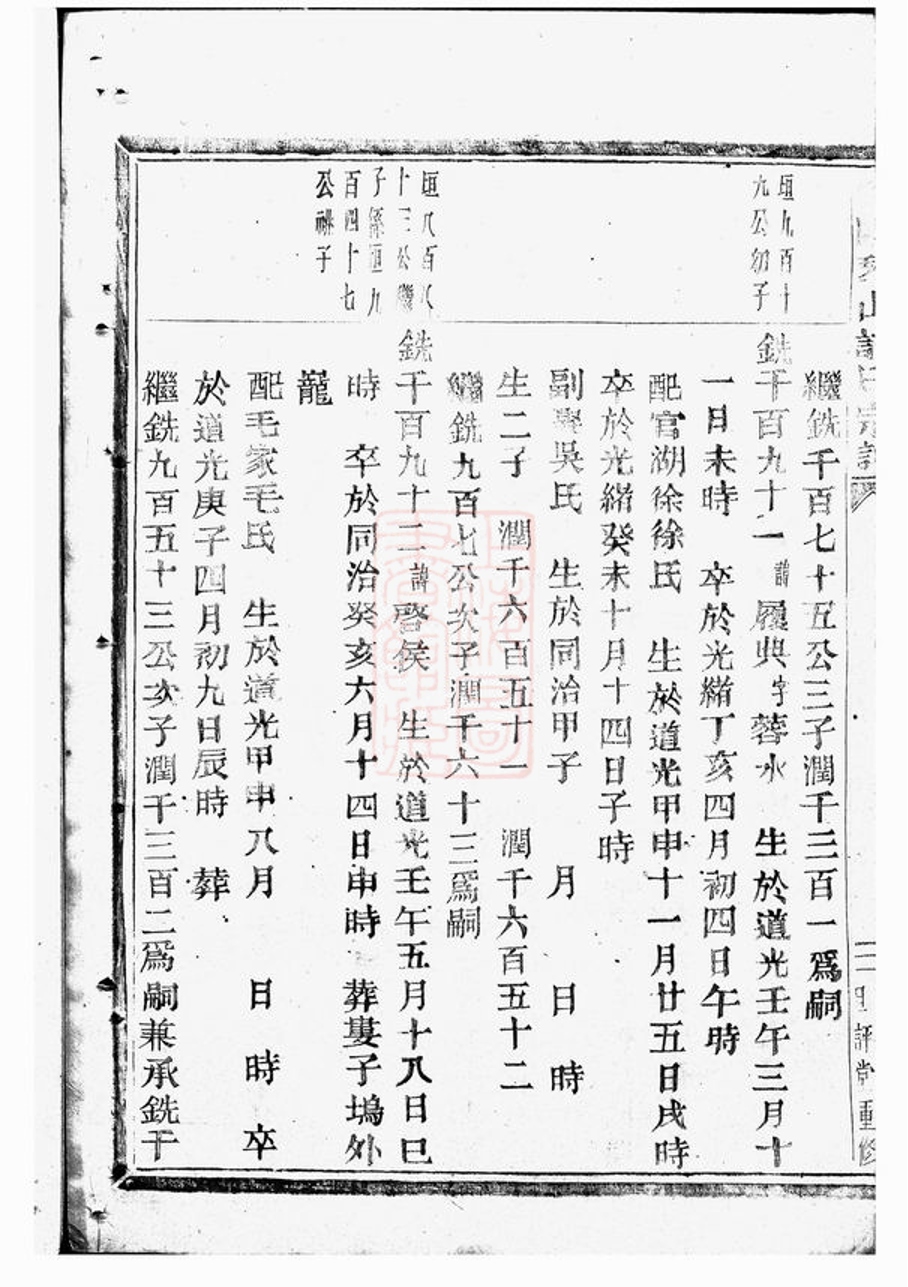 繼銑千百七十五公三子潤千三百一爲嗣
垣九百十
九公幼子
銑千百九十一 諱履典 字蓉水 生於道光壬午三月十
一日未時 卒於光緒丁亥四月初四日午時
配官湖徐徐氏 生於道光甲申十一月廿五日戌時
卒於光緒癸未十月十四日子時
副室吳氏 生於同治甲子 月 日 時
生二子 潤千六百五十一 潤千六百五十二
繼銑九百七公次子潤千六十三爲嗣
垣八百八
十三公繼
子係垣九
百四十七
公祧子
銑千百九十二 諱啓侯 生於道光壬午五月十八日巳
時 卒於同治癸亥六月十四日申時 葬婁子塢外
寵
配毛家毛氏 生於道光甲申八月 日 時 卒
於道光庚子四月初九日辰時 葬
繼銑九百五十三公次子潤千三百二爲嗣兼承銑千
重修